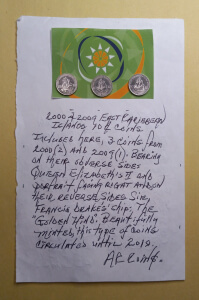 2000 & 2009 East Caribbean
Islands 10 ¢ coins
Included here, 3 coins from
2000(2) and 2009(1). Bearing
on their obverse sides
Queen Elizabeth's II and
portrait facing right and on
their reverse sides Sir,
Francis Drake's ship; The
"Golden Hind". Beautifully
minted, this type of coins
circulated until 2019.